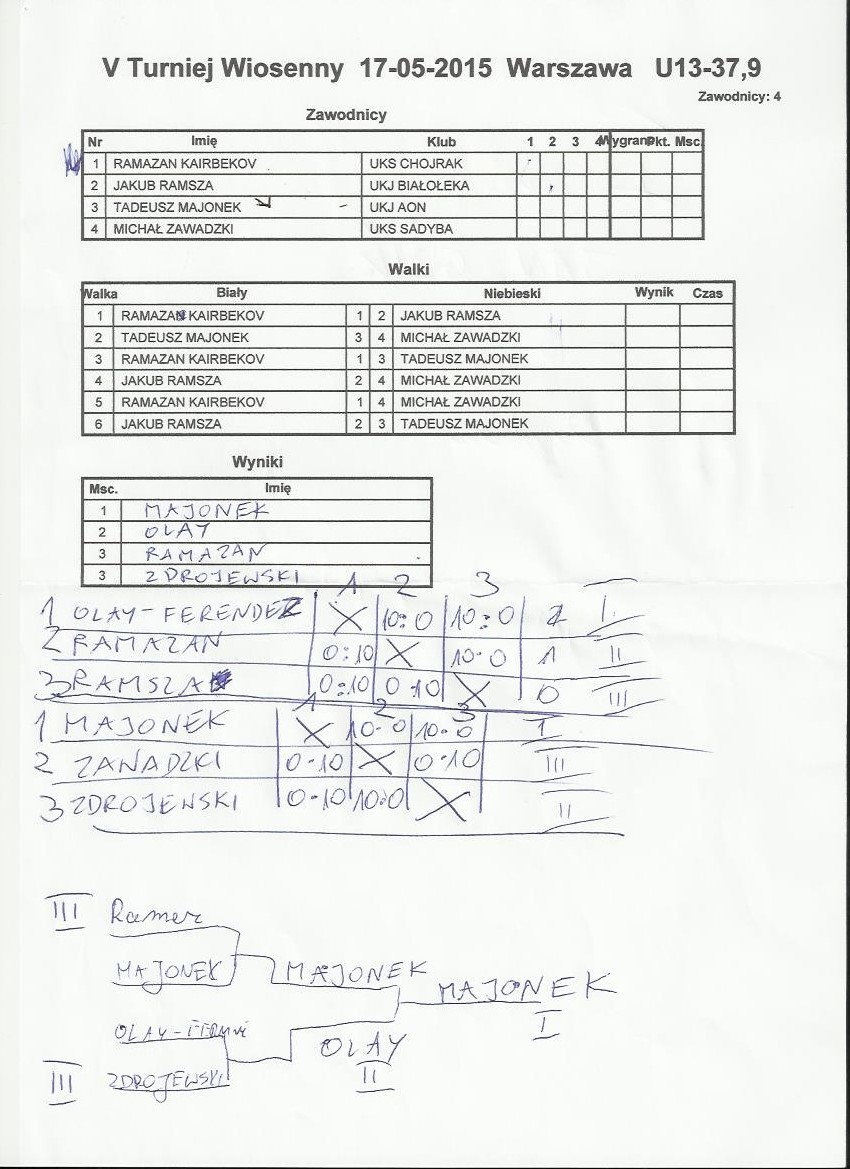 V Turniej Wiosenny 17-05-2015 Warszawa U13-37,9
Zawodnicy: 4
Zawodnicy
Nr Imię Klub 1 2 3 4 Wygrane Pkt. Msc.
1 RAMAZAN KAIRBEKOV UKS CHOJRAK
2 JAKUB RAMSZA UKJ BIAŁOŁEKA
3 TADEUSZ MAJONEK UKJ AON
4 MICHAŁ ZAWADZKI UKS SADYBA
Walki
Walka Biały Niebieski Wynik Czas
1 RAMAZAN KAIRBEKOV 1 2 JAKUB RAMSZA
2 TADEUSZ MAJONEK 3 4 MICHAŁ ZAWADZKI
3 RAMAZAN KAIRBEKOV 1 3 TADEUSZ MAJONEK
4 JAKUB RAMSZA 2 4 MICHAŁ ZAWADZKI
5 RAMAZAN KAIRBEKOV 1 4 MICHAŁ ZAWADZKI
6 JAKUB RAMSZA 2 3 TADEUSZ MAJONEK
Wyniki
Msc. Imię
1 MAJONEK
2 OLAY
3 RAMAZAN
3 ZDROJEWSKI
1 2 3
1 OLAY-FERENDEZ X 10:0 10:0 2 I
2 RAMAZAN 0:10 X 10-0 1 II
3 RAMSZA 0:10 0 10 X 0 III
1 2 3
1 MAJONEK X 10-0 10-0 I
2 ZAWADZKI 0-10 X 0-10 III
3 ZDROJEWSKI 0-10 10:0 X II
III Ramez
MAJONEK MAJONEK
MAJONEK
I
OLAY-
OLAY
II
III ZDROJEWSKI